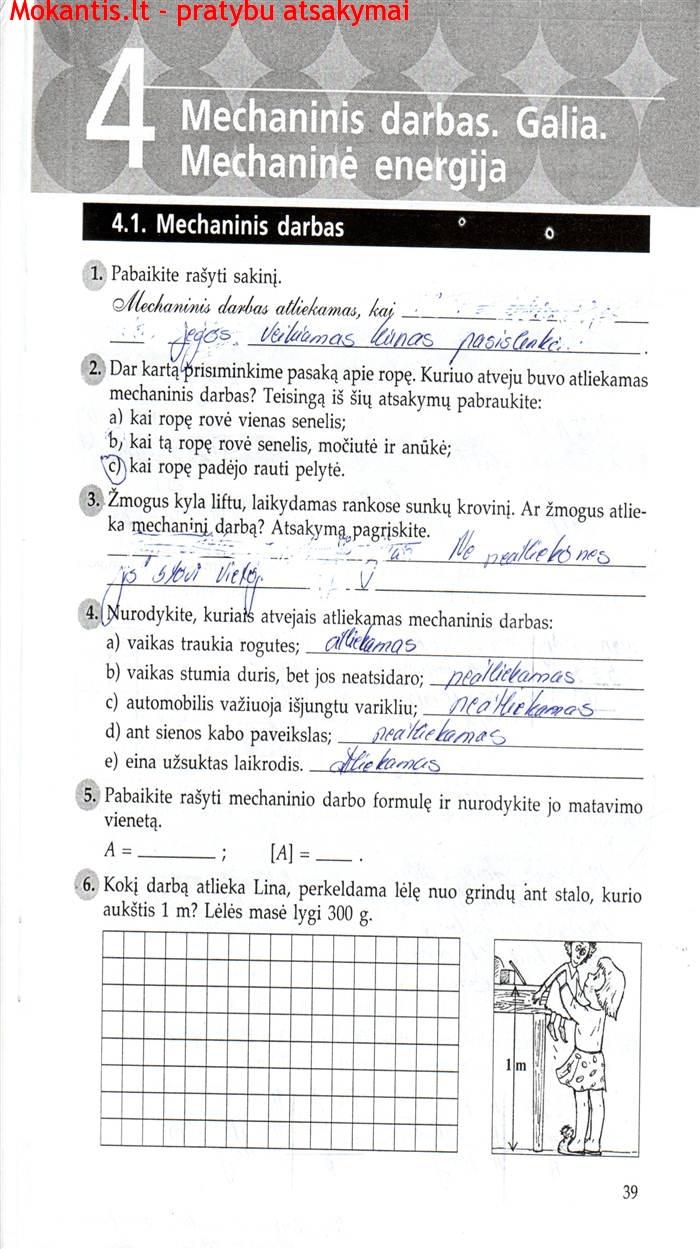 Mokantis.lt - pratybu atsakymai
4 Mechaninis darbas. Galia.
Mechaninė energija
4.1. Mechaninis darbas
1. Pabaikite rašyti sakinį.
Mechaninis darbas atliekamas, kai
jėgos veikiamas kūnas pasislenka.
2. Dar kartą prisiminkime pasaką apie ropę. Kuriuo atveju buvo atliekamas
mechaninis darbas? Teisingą iš šių atsakymų pabraukite:
a) kai ropę rovė vienas senelis;
b) kai tą ropę rovė senelis, močiutė ir anūkė;
c) kai ropę padėjo rauti pelytė.
3. Žmogus kyla liftu, laikydamas rankose sunkų krovinį. Ar žmogus atlie-
ka mechaninį darbą? Atsakymą pagrįskite.
Ne neatlieka nes
jis stovi vietoj.
4. Nurodykite, kuriais atvejais atliekamas mechaninis darbas:
a) vaikas traukia rogutes; atliekamas
b) vaikas stumia duris, bet jos neatsidaro; neatliekamas
c) automobilis važiuoja išjungtu varikliu; neatliekamas
d) ant sienos kabo paveikslas; neatliekamas
e) eina užsuktas laikrodis. atliekamas
5. Pabaikite rašyti mechaninio darbo formulę ir nurodykite jo matavimo
vienetą.
A = ; [A] = .
6. Kokį darbą atlieka Lina, perkeldama lėlę nuo grindų ant stalo, kurio
aukštis 1 m? Lėlės masė lygi 300 g.
1 m
39